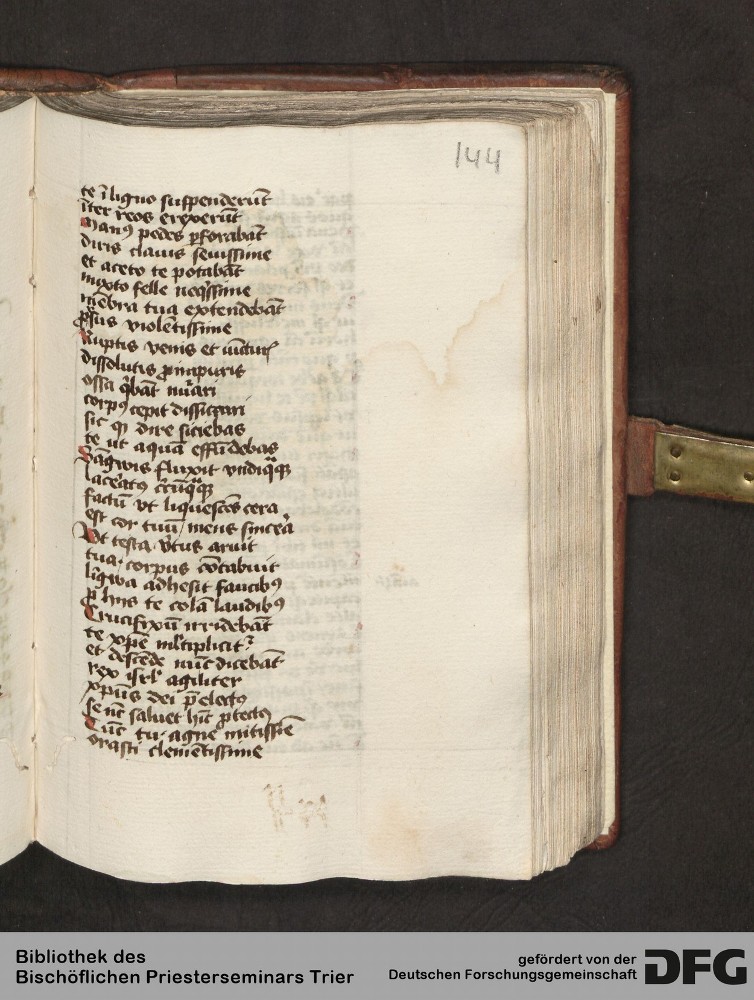 144
te ī ligno suspenderūt
īter reos erexerūt
Manꝰ pedes ꝑforabāt
diris clauis seuissime
et aceto te potabāt
mixto felle neq̄ssime
mēbra tua extendebāt
ꝓrsus violētissime
Ruptis venis et iūcturꝭ
dissolutis
ossa q̄bāt nūari
corpꝰ cepit dissiccari
sic qꝫ dire siciebas
te ut aquā effūdebas
Sāgwis fluxit vndiqꝫ
laceratꝰ
factū vt liquescēs cera
est cor tuū mens sincera
Vt testa v̄tus aruit
tua corpus cōtabuit
līgwa adhesit faucibꝰ
ꝓ hijs te colā laudibꝰ
Crucifixū irridebāt
te xp̄e mltiplicitꝰ
et descēde nūc dicebāt
rex isrl̄ agiliter
xp̄us dei p̄electꝰ
se nūc saluet hīc ꝓtectꝰ
Tūc tu agne mitissīe
orasti clemētissime
Bibliothek des
Bischöflichen Priesterseminars Trier
gefördert von der
Deutschen Forschungsgemeinschaft
DFG